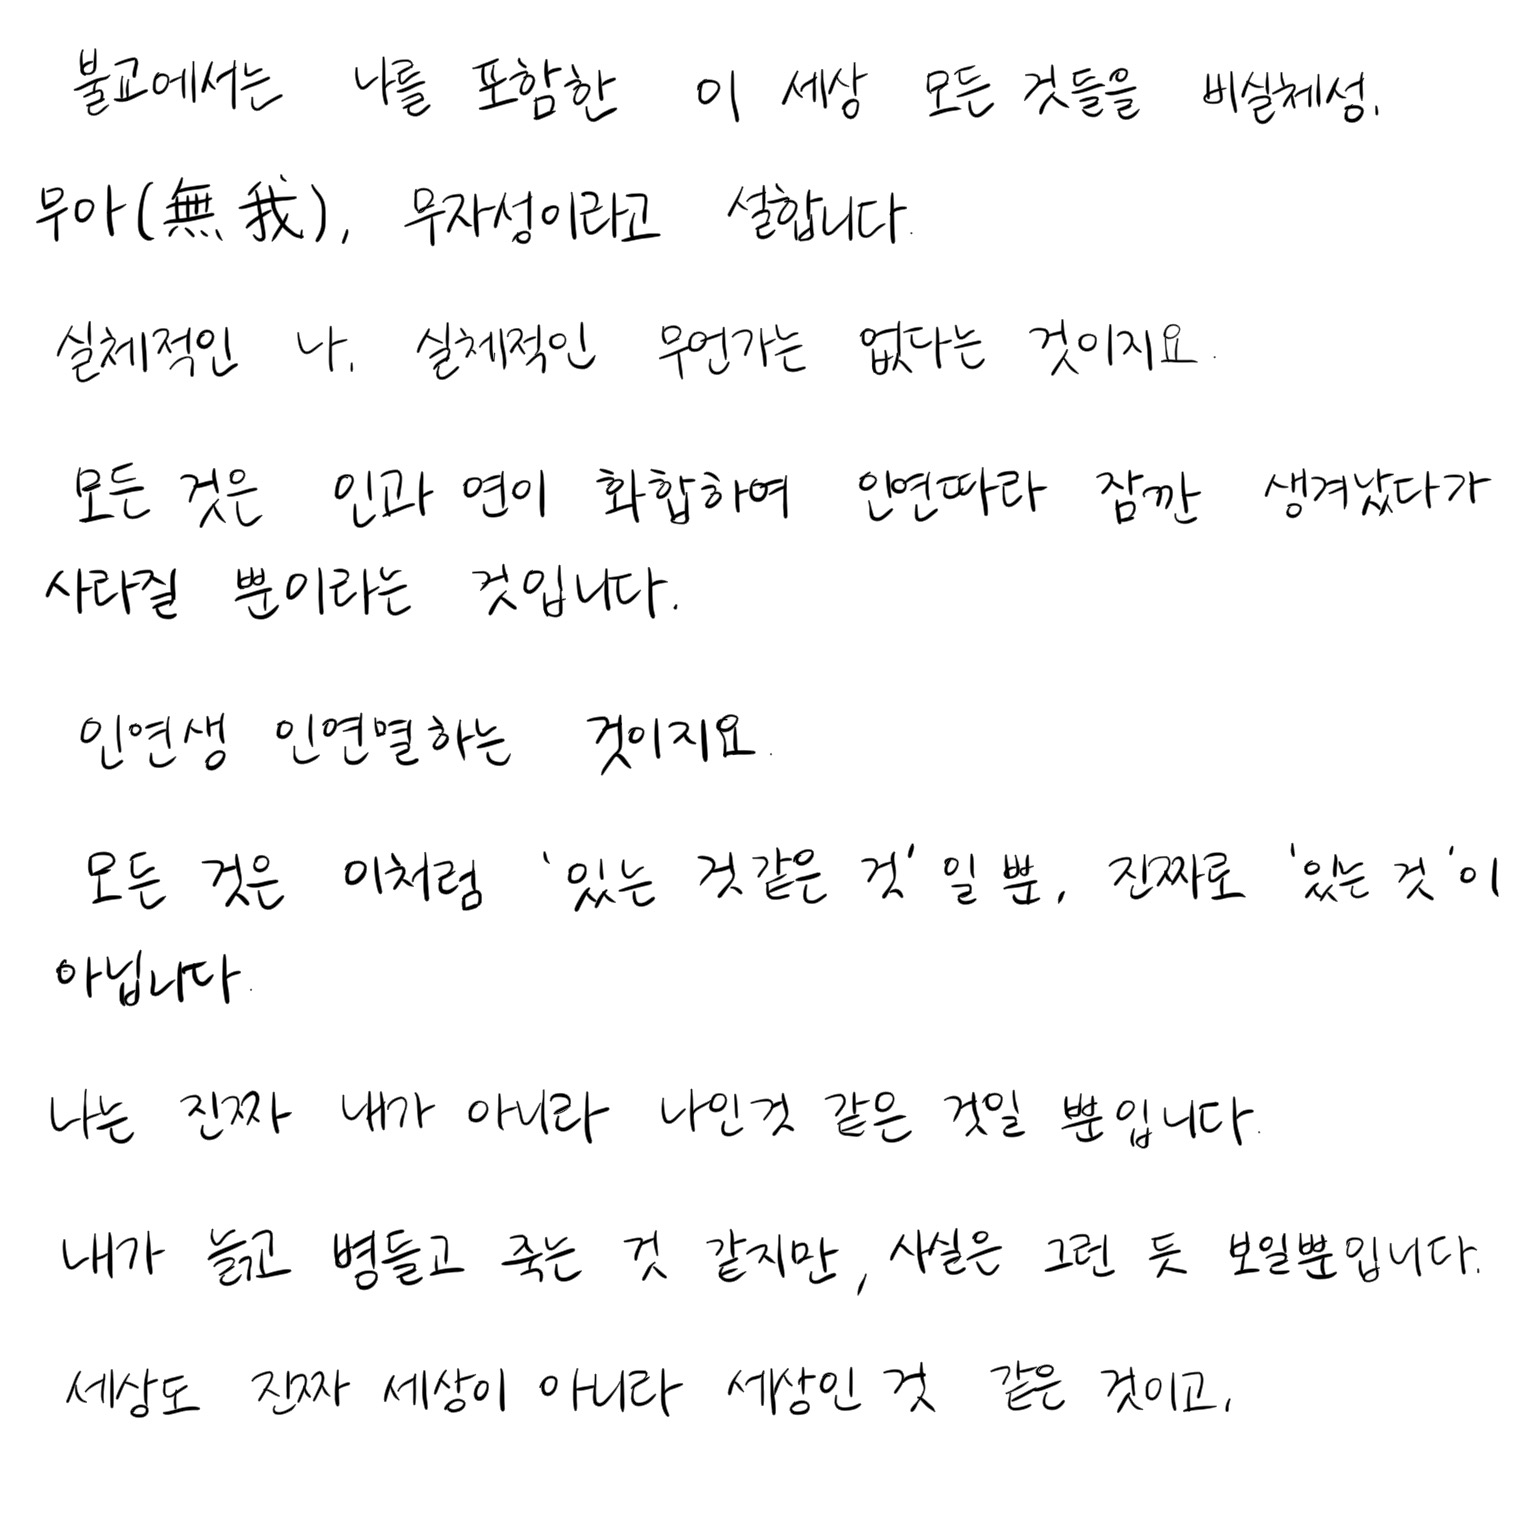 불교에서는 나를 포함한 이 세상 모든 것들을 비실체성,
무아(無我), 무자성이라고 설합니다.
실체적인 나, 실체적인 무언가는 없다는 것이지요.
모든 것은 인과 연이 화합하여 인연따라 잠깐 생겨났다가
사라질 뿐이라는 것입니다.
인연생 인연멸하는 것이지요.
모든 것은 이처럼 '있는 것같은 것'일 뿐, 진짜로 '있는 것'이
아닙니다.
나는 진짜 내가 아니라 나인것 같은 것일 뿐입니다.
내가 늙고 병들고 죽는 것 같지만, 사실은 그런 듯 보일뿐입니다.
세상도 진짜 세상이 아니라 세상인 것 같은 것이고,